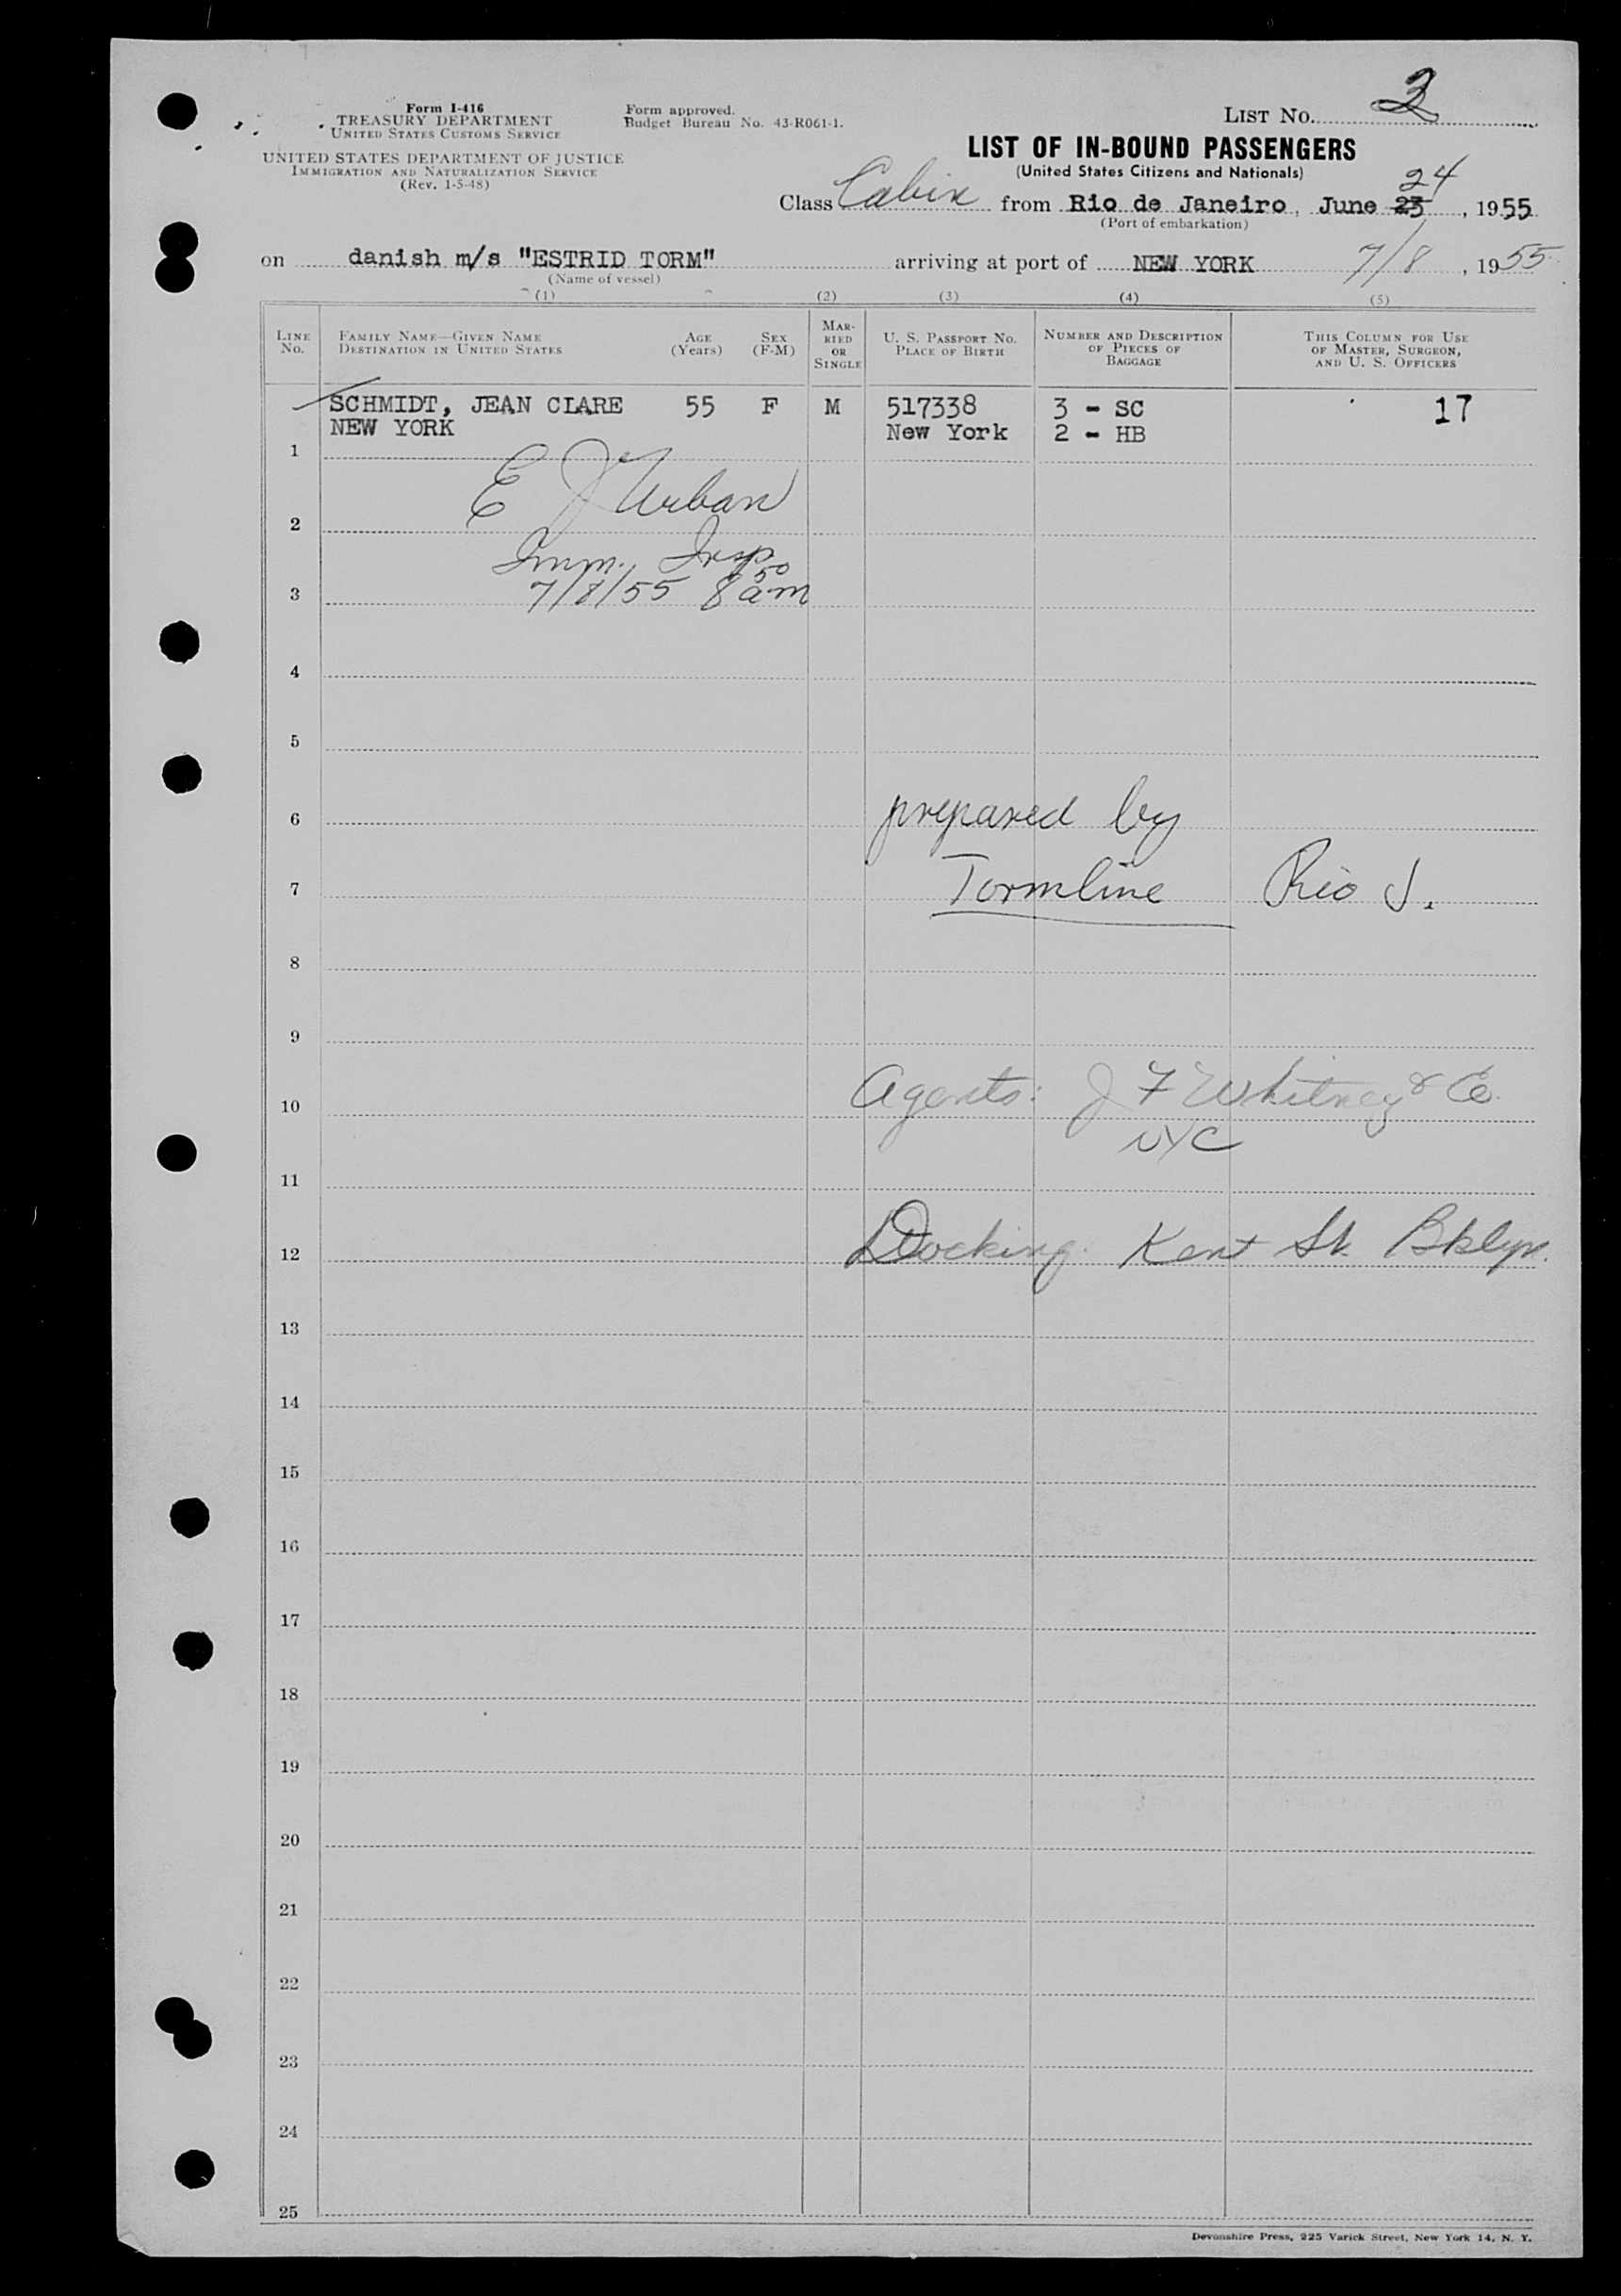 Form I-416
TREASURY DEPARTMENT
UNITED STATES CUSTOMS SERVICE
UNITED STATES DEPARTMENT OF JUSTICE
IMMIGRATION AND NATURALIZATION SERVICE
(Rev. 1-5-48)
Form approved.
Budget Bureau No. 43-R061-1.
LIST No.
LIST OF IN-BOUND PASSENGERS
(United States Citizens and Nationals)
24
Class Cabin from Rio de Janeiro, June 23, 1955
(Port of embarkation)
on danish m/s "ESTRID TORM" arriving at port of NEW YORK 7/8, 1955
(Name of vessel)
(1) (2) (3) (4) (5)
LINE No. FAMILY NAME—GIVEN NAME DESTINATION IN UNITED STATES AGE (Years) SEX (F-M) MARRIED OR SINGLE U. S. PASSPORT No. PLACE OF BIRTH NUMBER AND DESCRIPTION OF PIECES OF BAGGAGE THIS COLUMN FOR USE OF MASTER, SURGEON, AND U. S. OFFICERS
SCHMIDT, JEAN CLARE 55 F M 517338 3 - SC 17
NEW YORK New York 2 - HB
1
E J Urban
2
Imm. Insp
7/8/55 8 50 am
3
4
5
6 prepared by
7 Tormline Rio J.
8
9
10 Agents: J F Whitney & Co.
NYC
11
12 Docking: Kent St. Bklyn.
13
14
15
16
17
18
19
20
21
22
23
24
25
Devonshire Press, 225 Varick Street, New York 14, N. Y.